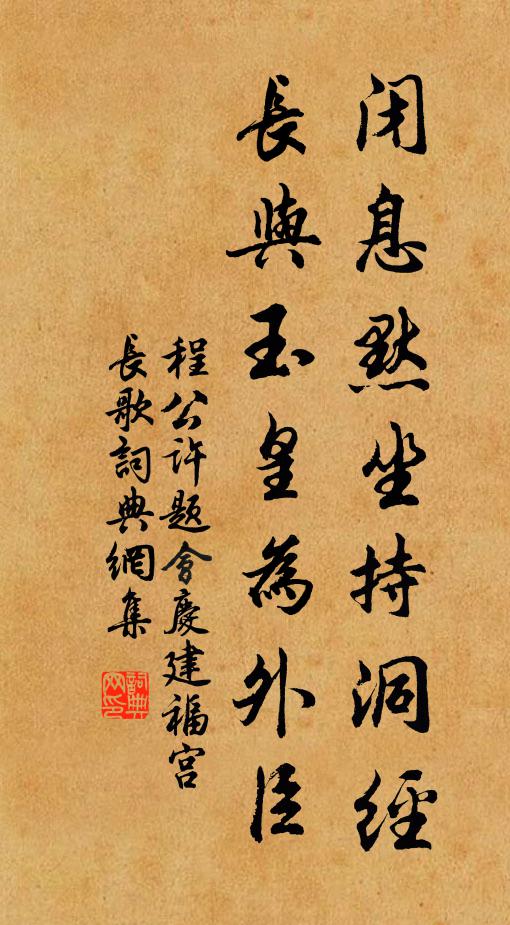 闭息默坐持洞經
長與玉皇為外臣
程公许题會慶建福宫
長歌詞典網集
詞典网印